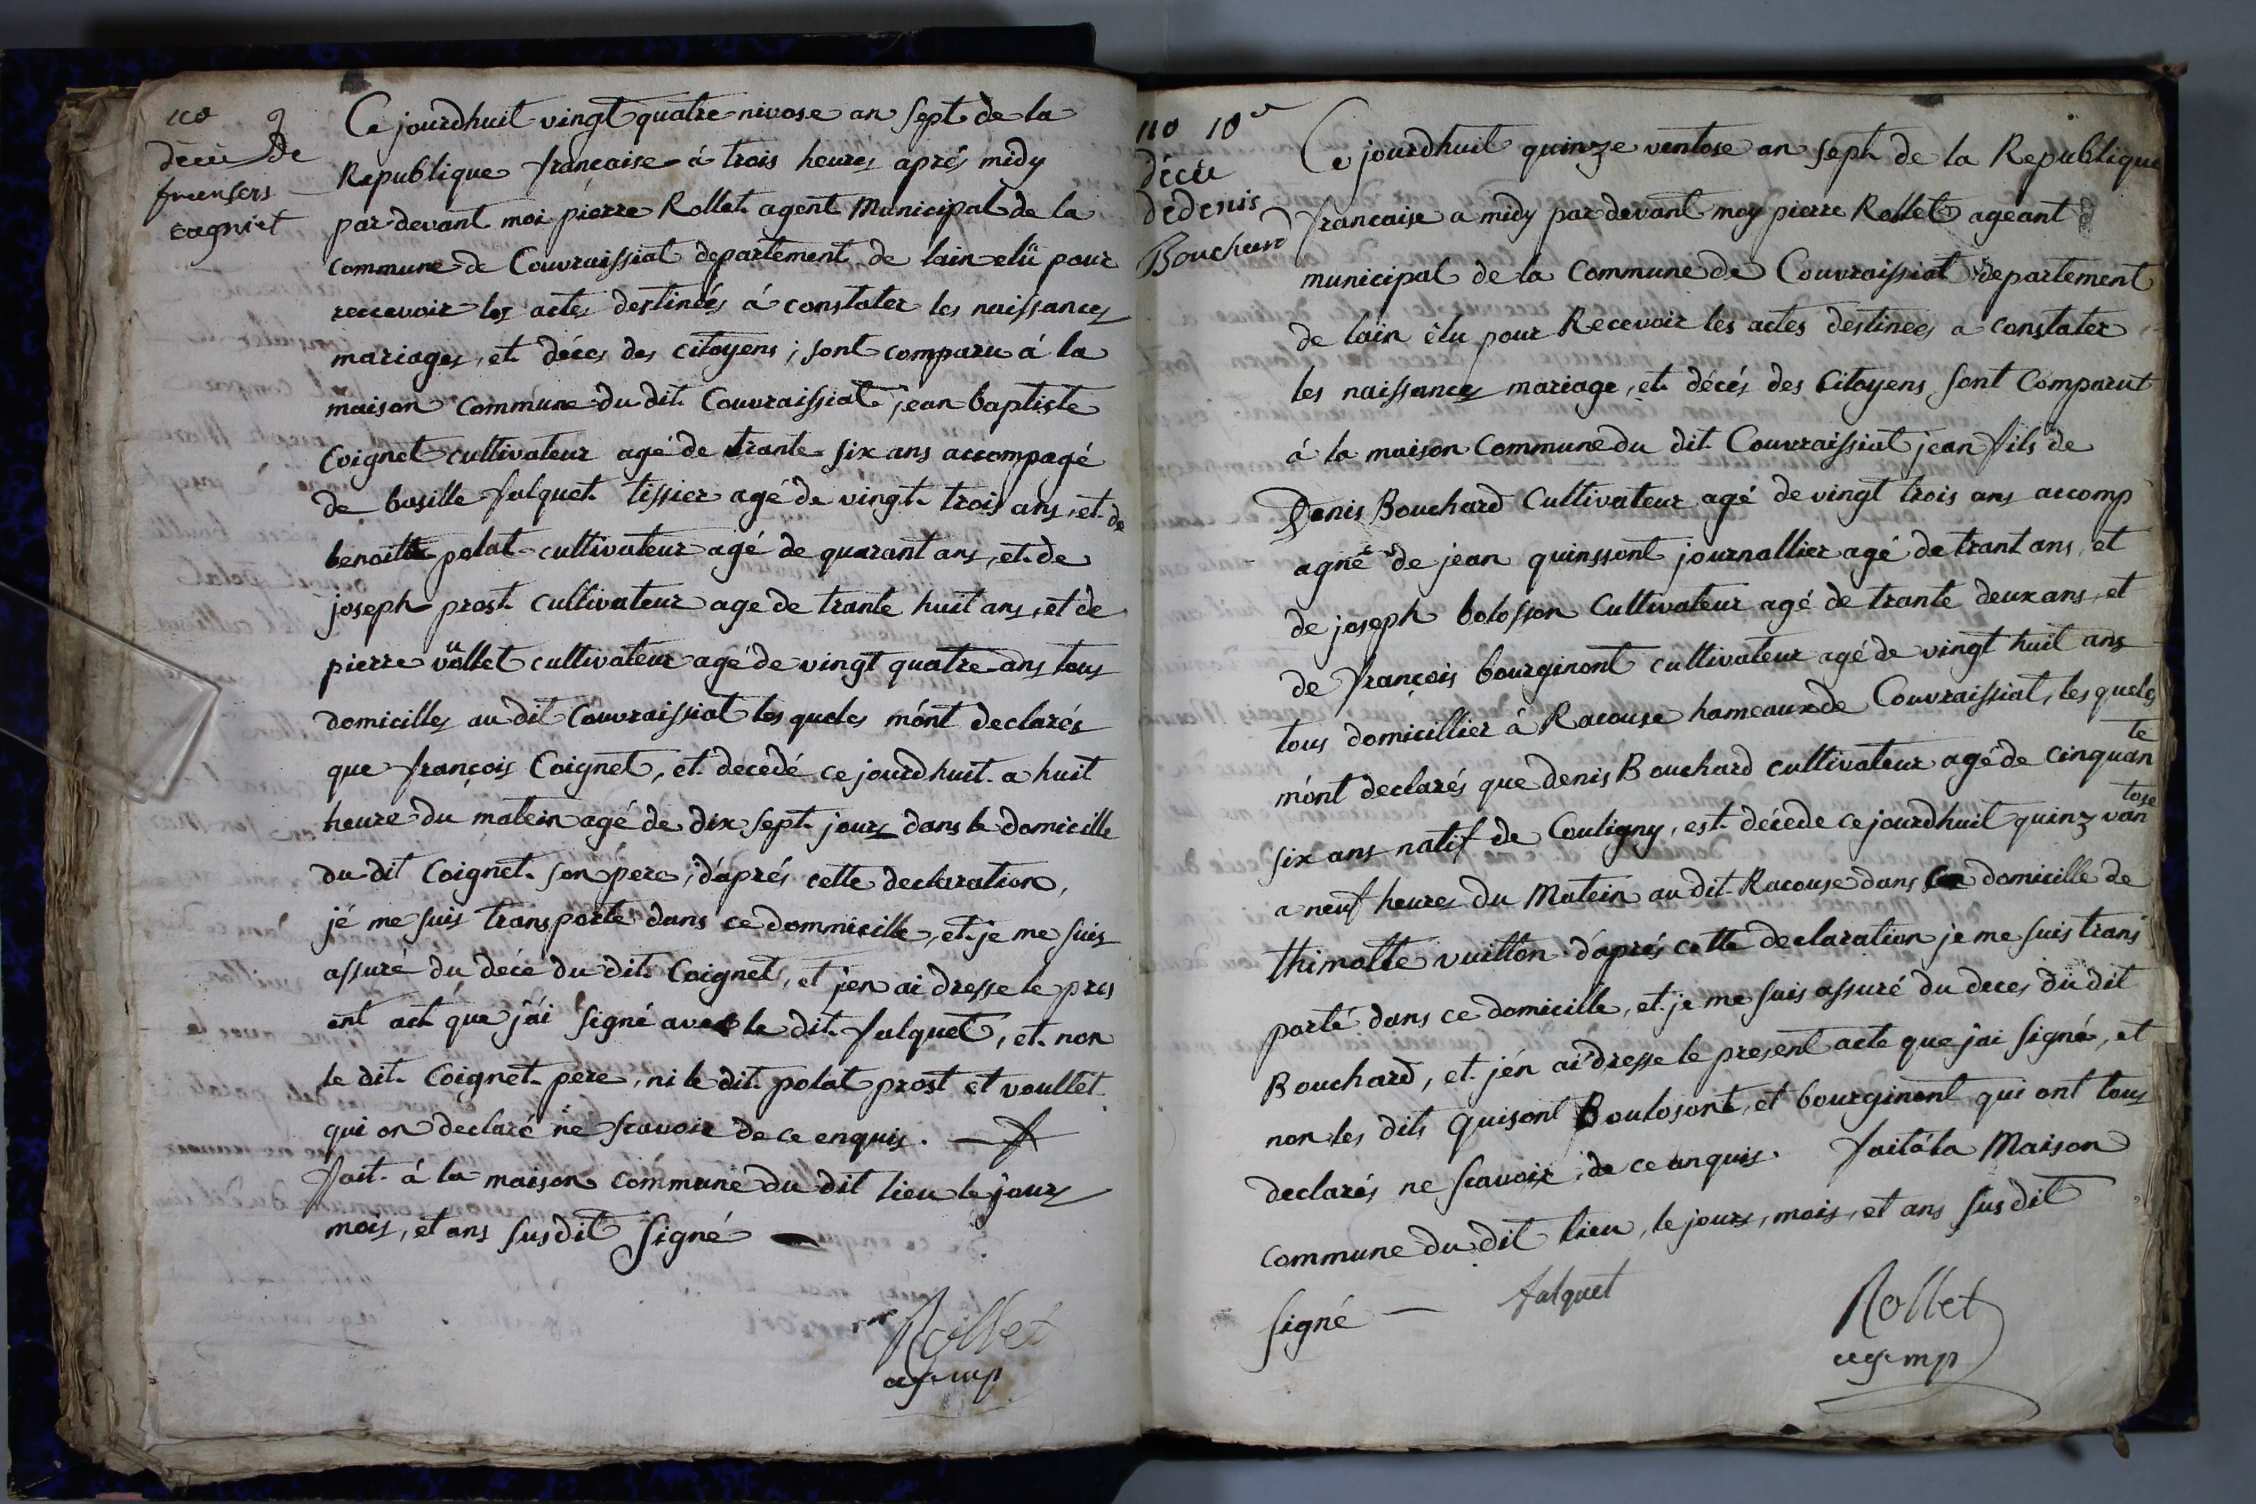 9
décée de
fransois
cagniet
Ce jourdhuit vingt quatre nivose an sept de la
Republique francaise á trois heures aprés midy
par devant moi pierre Rollet agent Municipal de la
commune de Couvraissiat departement de lain elü pour
reccevoir les actes destineés á constater les naissances
mariages, et déces des citoyens ; sont comparu á la
maison commune du dit Couvraissiat jean baptiste
Coignet cultivateur agé de trante six ans accompagé
de basille falquet tissier agé de vingt trois ans, et de
benoitte polat cultivateur agé de quarant ans, et de
joseph prost cultivateur age de trante huit ans, et de
pierre vüollet cultivateur agé de vingt quatre ans tous
domicilles au dit Couvraissiat les queles mónt declarés
que françois Coignet, et decedé ce jourdhuit a huit
heure du matein agé de dix sept jours dans le domicille
du dit Coignet son pere, dáprés cette declaration,
jé me suis transporté dans ce dommicille, et je me suis
assuré du decé du dit Coignet, et jen ai dresse le pres
ent act que jái signé avec le dit falquet, et non
le dit Coignet pere, ni le dit polat prost et voullet
qui on declaré ne scavoir de ce enquis.
fait á la maison commune du dit lieu le jours
mois, et ans susdit signé
Rollet
ag mp
110 10e
décée
dedenis
Bouchard
Ce jourdhuit quinze ventose an sept de la Republique
francaise a midy par devant moy pierre Rollet ageant
municipal de la Commune de Couvraissiat departement
de lain élu pour Recevoir les actes destinees a constater
les naissances mariage, et décés des Citoyens sont Comparut
á la maison Commune du dit Couvraissiat jean fils de
Denis Bouchard Cultivateur agé de vingt trois ans accomp
agnés de jean quinssont journallier agé de trant ans, et
de joseph bolosson Cultivateur agé de trante deux ans, et
de françois bourginont cultivateur agé de vingt huit ans
tous domicillier à Racouse hameaux de Couvraissiat, les queles
mónt declarés que denis Bouchard cultivateur agé de cinquante
six ans natif de Couligny, est décede ce jourdhuit quinz vantose
a neuf heures du Matein au dit Racouse dans domicille de
thimotte vuitton dáprés cette declaration je me suis trans
porté dans ce domicille, et je me suis assuré du deces du dit
Bouchard, et jén ai dresse le present acte que jai signé, et
non les dits quisont Boulosont, et bourginont qui ont tous
declarés ne scavoir de ce anquis. fait á la Maison
commune du dit lieu, le jours, mois, et ans susdit
signé falquet
Rollet
ag mp